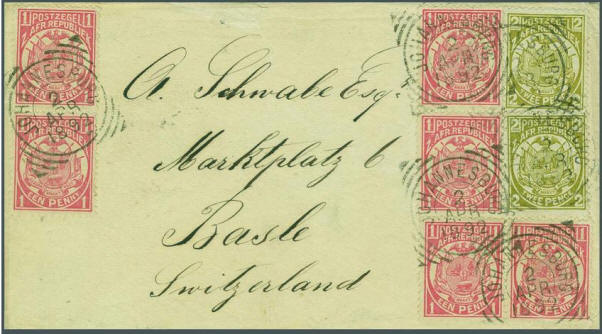 1 POSTZEGEL 1
AFR REPUBLIEK
EEN PENNY
POSTZEGEL
AFR REPUBLIEK
1 EEN PENNY 1
JOHANNESBURG
2
APR
92
A. Schwabe Esqre
Marktplatz 6
Basle
Switzerland
POSTZEGEL
AFR REPUBLIEK
EEN PENNY
2 POSTZEGEL 2
AFR REPUBLIEK
TWEE PENCE
1 POSTZEGEL 1
AFR REPUBLIEK
EEN PENNY
2 POSTZEGEL 2
AFR REPUBLIEK
TWEE PENCE
JOHANNESBURG
2
APR
92
1 POSTZEGEL 1
EEN PENNY
1 POSTZEGEL 1
EEN PENNY
JOHANNESBURG
2
APR